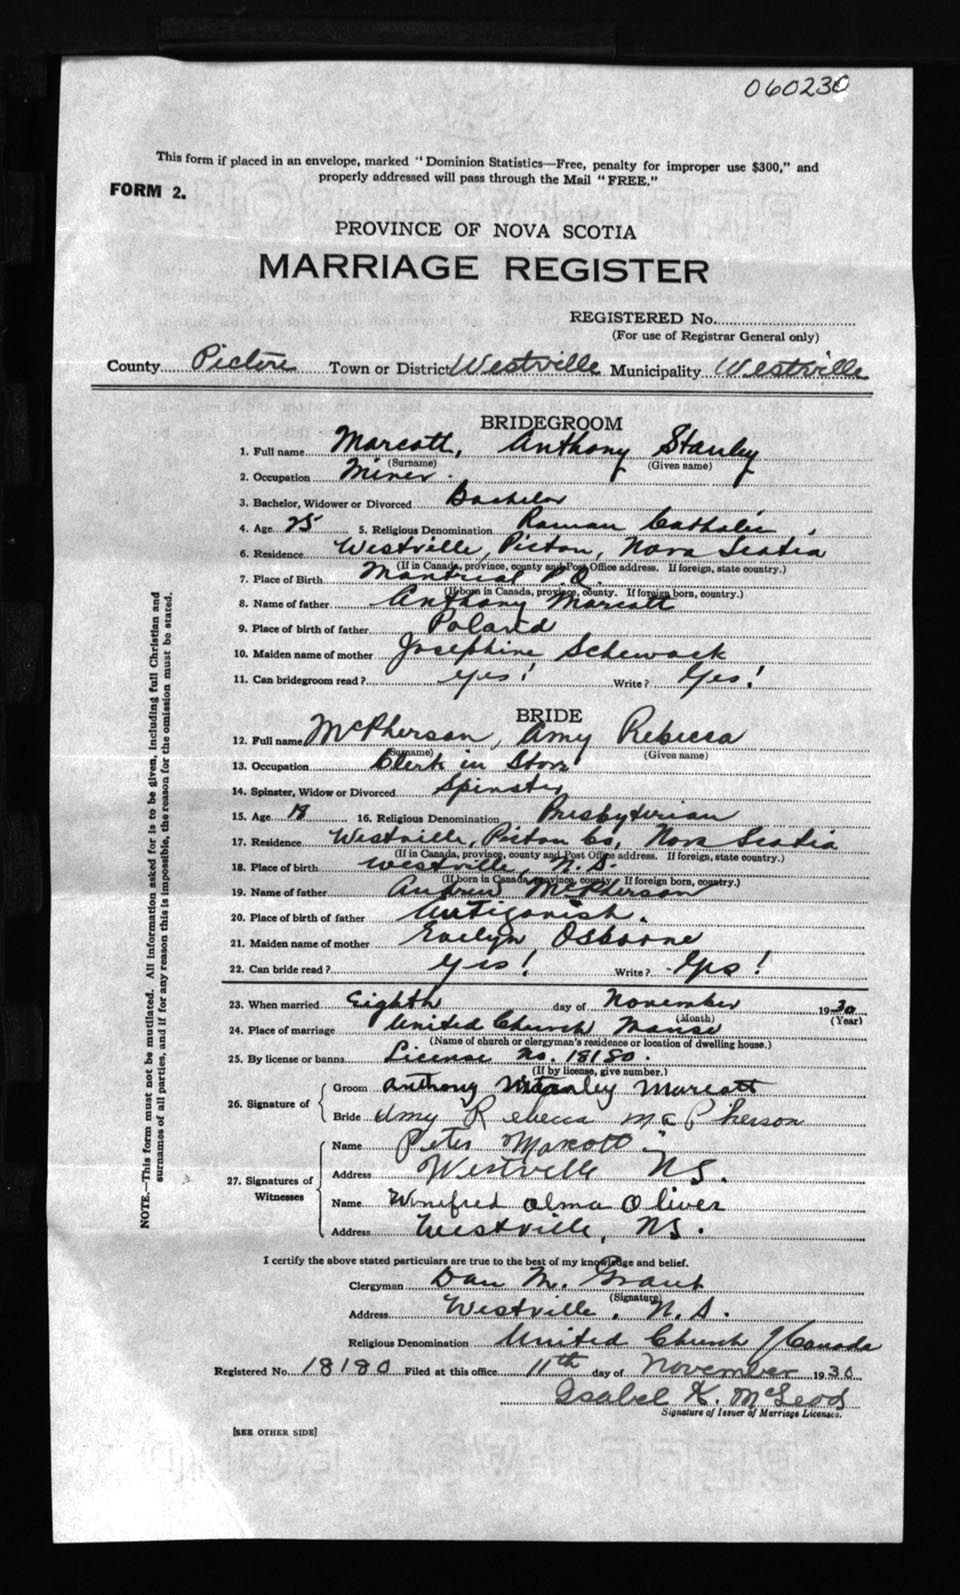 060230
This form if placed in an envelope, marked "Dominion Statistics—Free, penalty for improper use $300," and
properly addressed will pass through the Mail "FREE."
FORM 2.
PROVINCE OF NOVA SCOTIA
MARRIAGE REGISTER
REGISTERED No.
(For use of Registrar General only)
County Pictou Town or District Westville Municipality Westville
BRIDEGROOM
1. Full name Marcott, Anthony Stanley
(Surname) (Given name)
2. Occupation Miner.
3. Bachelor, Widower or Divorced Bachelor
4. Age 25 5. Religious Denomination Roman Catholic
6. Residence Westville, Picton, Nova Scotia
(If in Canada, province, county and Post Office address. If foreign, state country.)
7. Place of Birth Montreal P.Q.
(If born in Canada, province, county. If foreign born, country.)
8. Name of father Anthony Marcott
9. Place of birth of father Poland
10. Maiden name of mother Josephine Schewack
11. Can bridegroom read? Yes! Write? Yes!
BRIDE
12. Full name McPherson, Amy Rebecca
(Surname) (Given name)
13. Occupation Clerk in Store
14. Spinster, Widow or Divorced Spinster
15. Age 18 16. Religious Denomination Presbyterian
17. Residence Westville, Picton Co, Nova Scotia
(If in Canada, province, county and Post Office address. If foreign, state country.)
18. Place of birth Westville, N.S.
(If born in Canada, province, county. If foreign born, country.)
19. Name of father Andrew McPherson
20. Place of birth of father Antigonish.
21. Maiden name of mother Evelyn Osborne
22. Can bride read? Yes! Write? Yes!
23. When married Eighth day of November 1930
(Month) (Year)
24. Place of marriage United Church Manse
(Name of church or clergyman's residence or location of dwelling house.)
25. By license or banns License No. 18180.
(If by license, give number.)
26. Signature of
Groom Anthony Stanley Marcott
Bride Amy Rebecca McPherson
27. Signatures of Witnesses
Name Peter Marcott
Address Westville NS.
Name Winifred Alma Oliver
Address Westville, NS.
I certify the above stated particulars are true to the best of my knowledge and belief.
Clergyman Dan M. Grant
(Signature)
Address Westville, N.S.
Religious Denomination United Church of Canada
Registered No. 18180 Filed at this office 11th day of November 1930
Isabel K. McLeod
Signature of Issuer of Marriage Licenses.
[SEE OTHER SIDE]
NOTE.—This form must not be mutilated. All information asked for is to be given, including full Christian and
surnames of all parties, and if for any reason this is impossible, the reason for the omission must be stated.